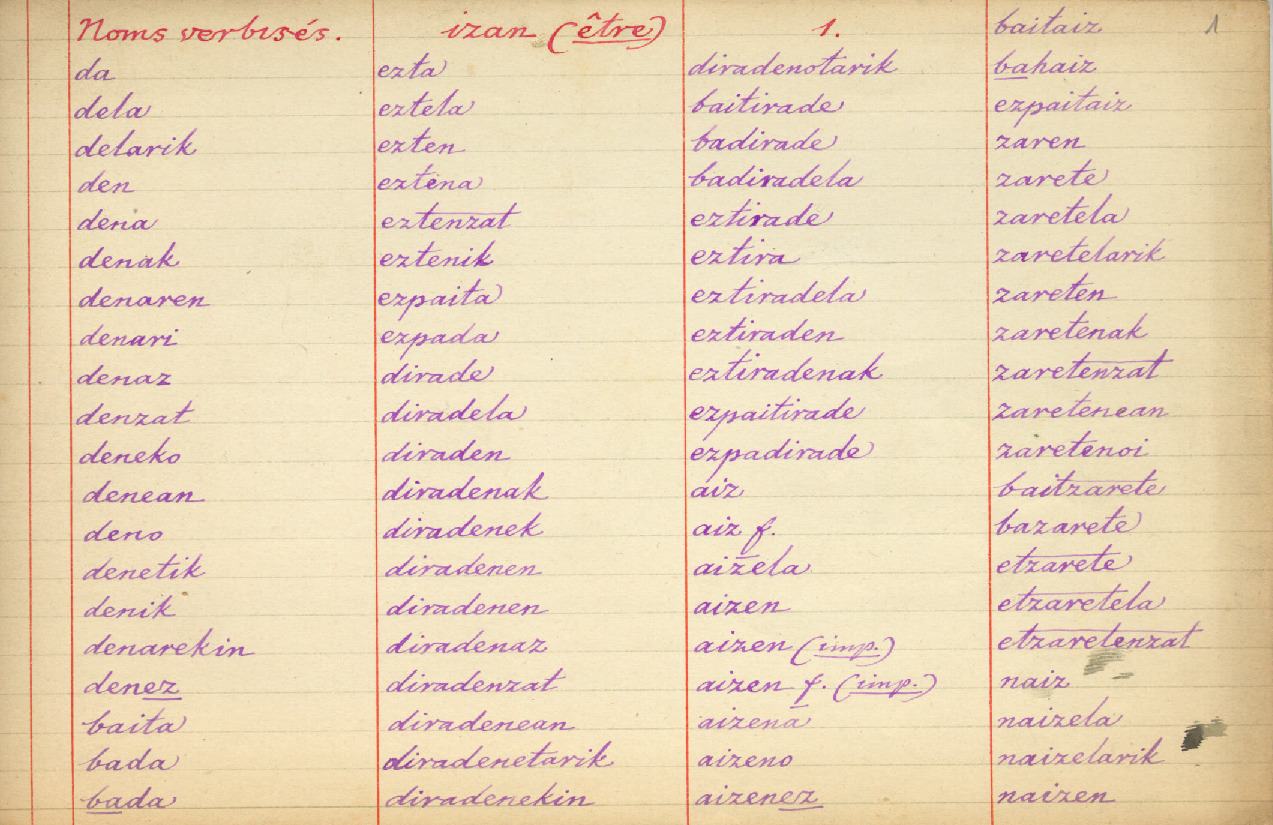 Noms verbisés. izan (être) 1.
1
da
dela
delarik
den
dena
denak
denaren
denari
denaz
denzat
deneko
denean
deno
denetik
denik
denarekin
denez
baita
bada
bada
ezta
eztela
ezten
eztena
eztenzat
eztenik
ezpaita
ezpada
dirade
diradela
diraden
diradenak
diradenek
diradenen
diradenen
diradenaz
diradenzat
diradenean
diradenetarik
diradenekin
diradenotarik
baitirade
badirade
badiradela
eztirade
eztira
eztiradela
eztiraden
eztiradenak
ezpaitirade
ezpadirade
aiz
aiz f.
aizela
aizen
aizen (imp.)
aizen f. (imp.)
aizena
aizeno
aizenez
baitaiz
bahaiz
ezpaitaiz
zaren
zarete
zaretela
zaretelarik
zareten
zaretenak
zaretenzat
zaretenean
zaretenoi
baitzarete
bazarete
etzarete
etzaretela
etzaretenzat
naiz
naizela
naizelarik
naizen